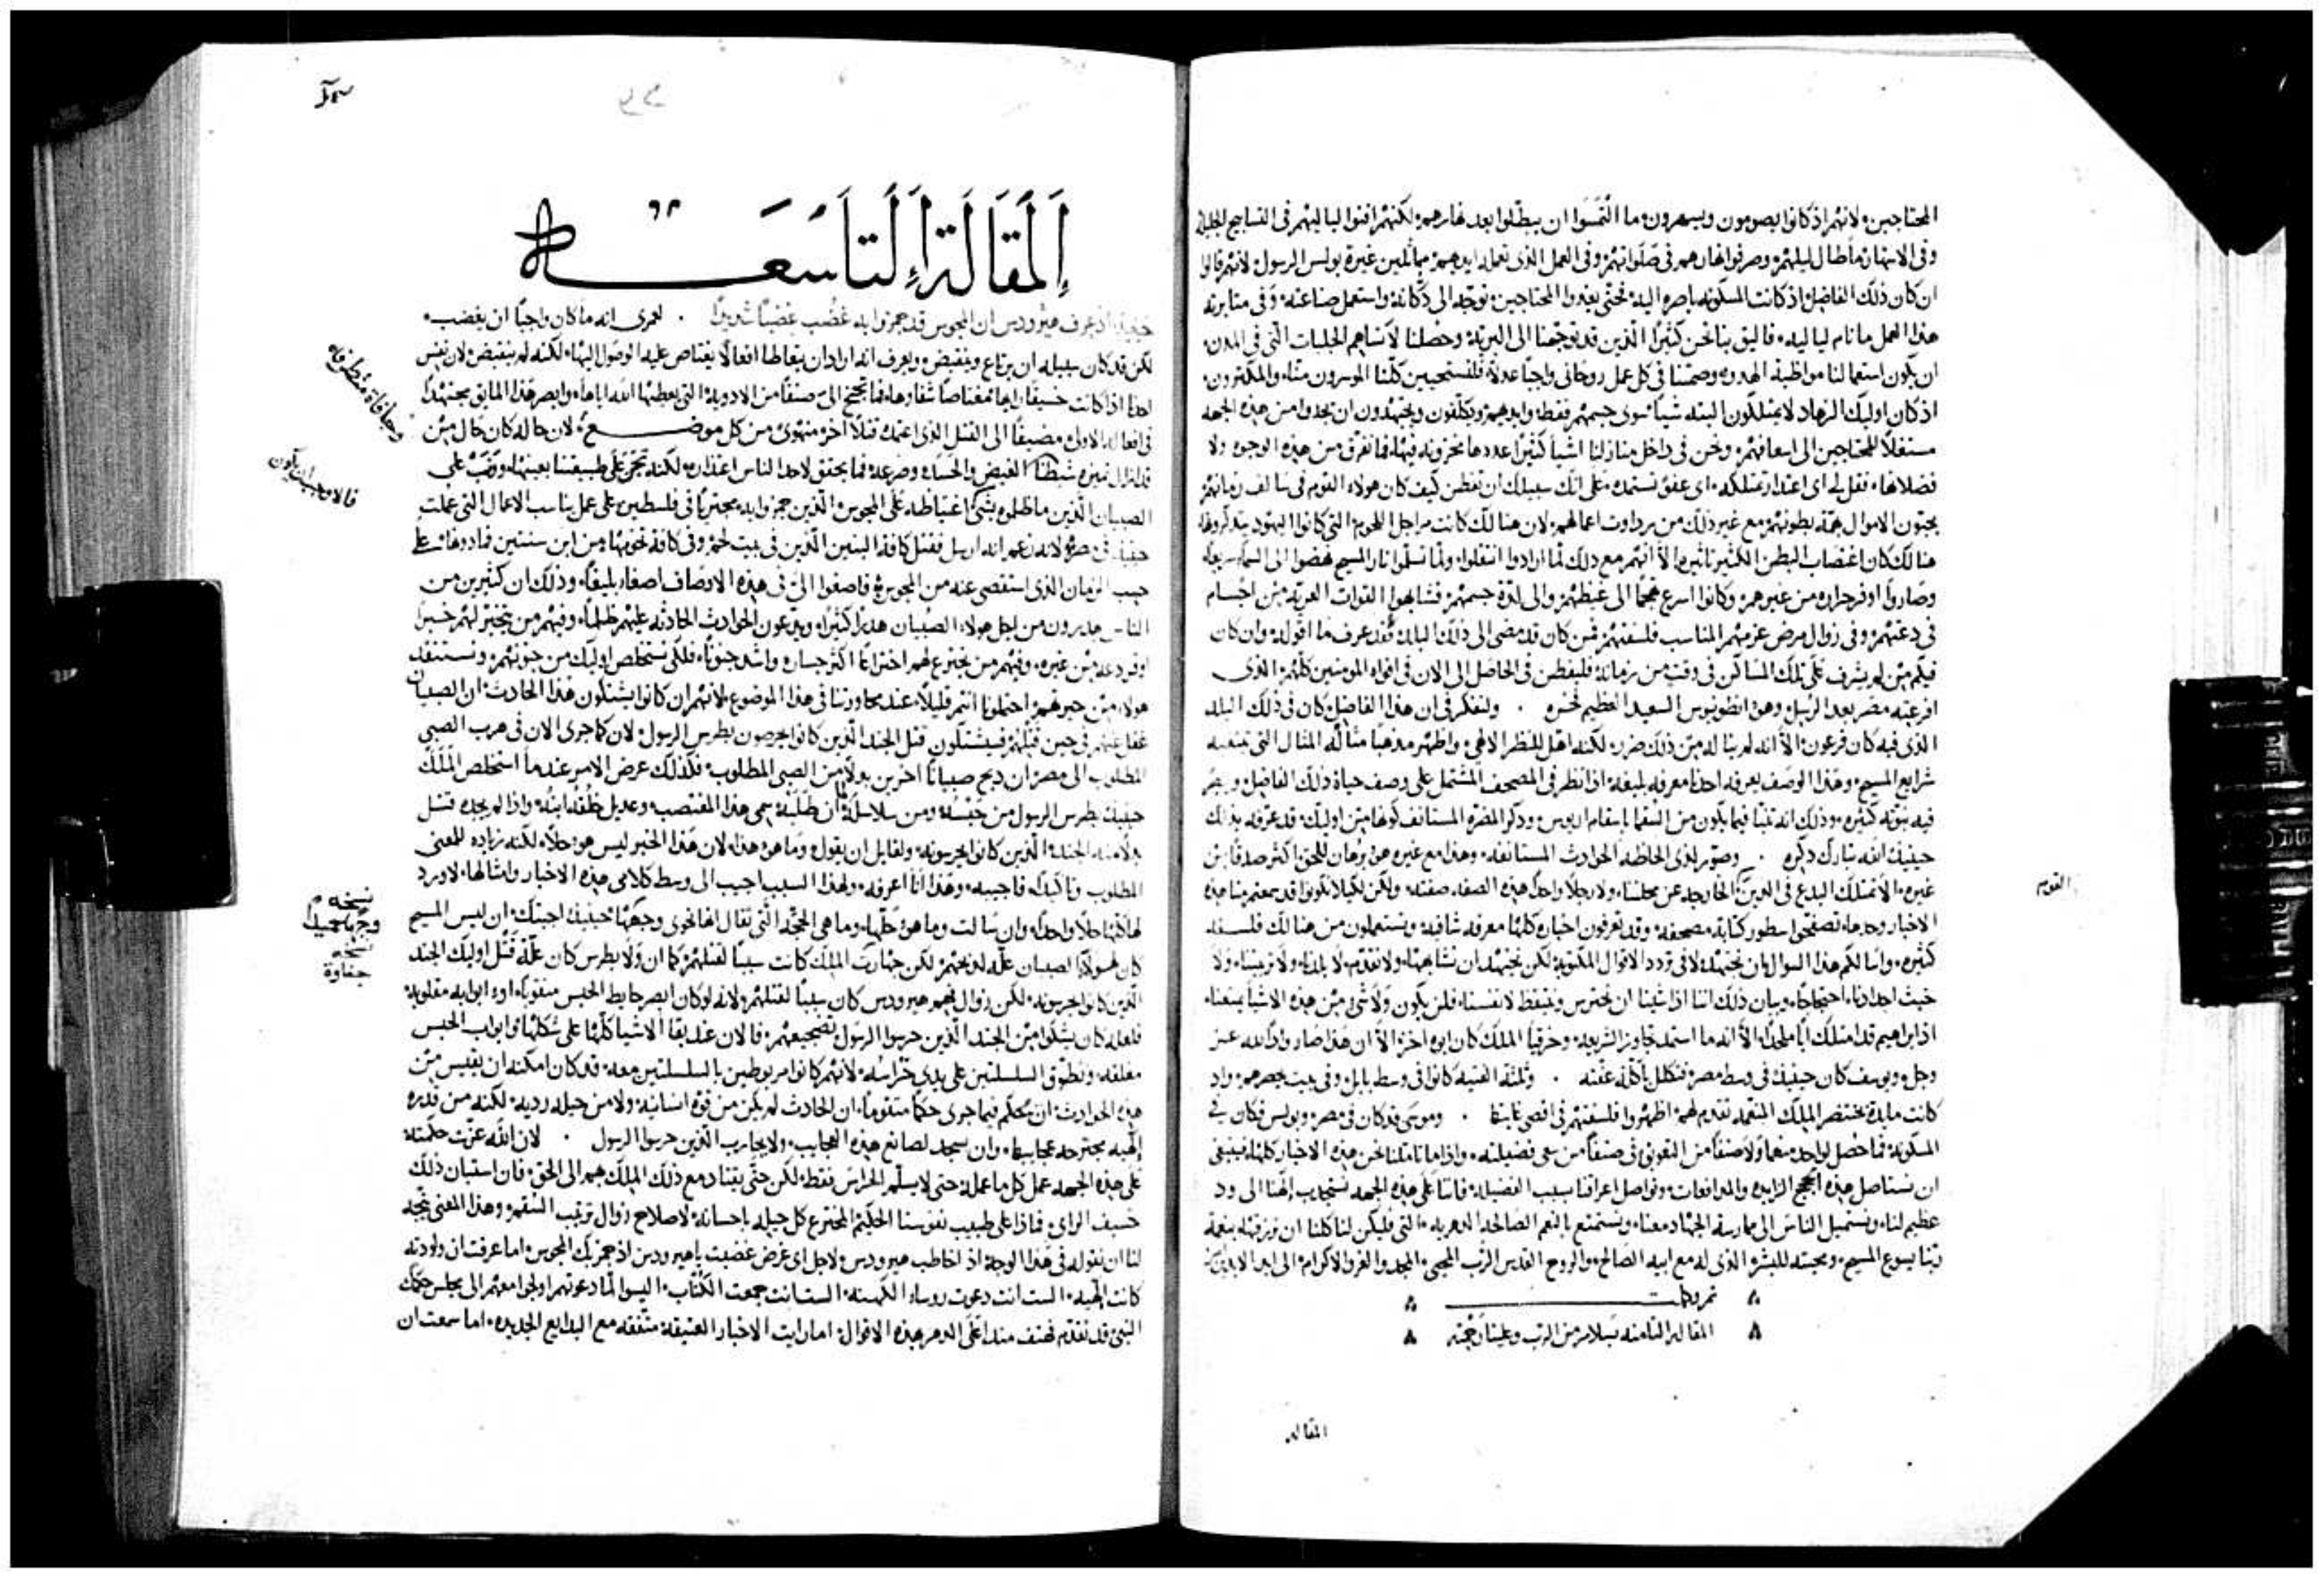 المحتاجين لانهم اذ كانوا يصومون ويسهرون ما التمسوا ان يبطلوا بعد نهارهم لكنهم افنوا لياليهم في التسابيح الجليلة
وصرفوا نهارهم في صلواتهم وفي العمل الذي تعمله ايديهم مماثلين غيرة بولس الرسول لانهم قالوا
ان كان ذلك الفاضل اذ كانت المسكونة باصرة اليه نحتى يغدوا المحتاجين توجه الى دكانه واستعمل صناعته وفي مثابرته
هذا العمل ما نام لياليه فاليق بنا نحن كثيرا الذين قد توجهنا الى البرية وحصلنا لا نساهم الجلبات التي في المدن
ان يكون استعمالنا مواظبة الهدو وصمتنا في كل عمل روحاني واجبا عدلا فلنستحيين كلنا الموسرون منا والمكثرون
اذ كان اوليك الزهاد لا يمتلكون البته شيا سوى جسمهم فقط وايديهم ويكلفون ويجتهدون ان يجدوا من هذه الجهه
مستغلا للمحتاجين الى اسعافهم ونحن في داخل منازلنا اشيا كثيرا عددها مخزونه فيها فما نفرق من هذه الوجوه ولا
فضلاتها فقل لي اي اعتذار نمتلكه اي عفو نستمده على انك سبيلك ان تفطن كيف كان هولاء القوم في سالف زمانهم
يحبون الاموال نهمة بطونهم مع غير ذلك من رداوت اعمالهم لان هنالك كانت مراجل اللحوم التي كانوا اليهود يتذكرونها
هنالك كان اغتصاب البطن الكثير تاثيره الا انهم مع ذلك لما ارادوا انتقلوا ولما تسلموا نار المسيح نهضوا الى السماء سريعا
وصاروا اوفر حراره من غيرهم وكانوا اسرع هجما الى غيظهم والى لذة جسمهم فشابهوا القوات العرية من اجسام
في دعتهم وفي زوال مرض عزمهم المناسب فلسفتهم فمن كان قد مضى الى ذلك البلد فقد عرف ما اقوله وان كان
فيكم من لم يشرف على تلك المساكن في وقت من زمانه فليفطن في الحاصل الى الان في افواه المومنين كلهم الذي
افرعته مصر بعد الرسل وهو انطونيوس السعيد العظيم فخره . ولنفتكر في ان هذا الفاضل كان في ذلك البلد
الذي فيه كان فرعون الا انه لم يناله من ذلك ضرر لكنه اهل للنظر الالهي واظهر مذهبا مثاله المثال التي تبتغيه
شرايع المسيح وهذا الوصف يعرفه احدنا معرفه بليغه اذا نظر في المصحف المشتمل على وصف حياة ذلك الفاضل ويبصر
فيه نبوته كثيره وذلك انه تنبا فيما يكون من السقما باسقام اريوس وذكر المضره المستانف كونها من اوليك قد عرفه بذلك
حينيذ الله تبارك ذكره . وصور لدى الحاظه الحوادث المستانفه وهذا مع غيره هو برهان للحق اكثر صدقا من
غيره الا نمتلك البدع في الدين الخارجه عن مجلسنا ولا رجلا واحدا هذه الصفه صفته ولكن لكيلا تكونوا قد سمعتم منا هذه
الاخبار وحدها تصفحوا سطور كتابة مصحفه وقد تعرفون اخباره كلها معرفه شافيه وتستعملون من هنالك فلسفه
كثيره واسالكم هذا السوال بان نجتهد لا في تردد الاقوال المكتوبه لكن نجتهد ان نشابهها ولا نقدم لا بلدنا ولا تربيتنا ولا
خبث اجدادنا احتجاجا وبيان ذلك اننا اذا شينا ان نحترس ونتيقظ لانفسنا فلن يكون ولا شي من هذه الاشيا يمنعنا
اذ ابراهيم قد امتلك ابا ملحدا الا انه ما استمد تجاوز الشريعه وحزقيا الملك كان ابوه اخز الا ان هذا صار ودا لله عز
وجل ويوسف كان حينيذ في وسط مصر فتكلل باكلة عفته . وثلثة الفتيه كانوا في وسط بابل وفي بيت بحصرهم واذ
كانت مايدة بختنصر الملك المتنعمه تقدم لهم اظهروا فلسفتهم في اقصى غايتها . وموسى قد كان في مصر وبولس فكان في
المسكونة فما حصل لواحد منهما ولا صنفا من التعويق في صنفا من سعى فضيلته واذا ما تاملنا نحن هذه الاخبار كلها فينبغي
ان نستاصل هذه الحجج الزايده والمدافعات ونواصل اعراقنا بسبب الفضيله فاننا على هذه الجهه نستجذب الهنا الى ود
عظيم لنا ونستميل الناس الى ممارسة الجهاد معنا ونستمتع بالنعم الصالحه الدهريه التي فليكن لنا كلنا ان نرزقها بنعمة
ربنا يسوع المسيح ومحبته للبشر الذي له مع ابيه الصالح والروح القدس الرب المحيي المجد والعز والاكرام الى ابد الابدين
تم وكملت
المقاله الثامنه بسلام من الرب وعلينا رحمته
المقاله
القوم
المقالة التاسعة
حينيذ اذ عرف هيرودس ان المجوس قد هزوا به غضب غضبا شديدا . لعمري انه ما كان واجبا ان يغضب
لكن قد كان سبيله ان يرتاع وينقبض ويعرف انه اراد ان يتعاطا افعالا يعتاص عليه الوصول اليها لكنه لم ينقبض لان نفس
احدنا اذا كانت
في افعاله الاولى مضيفا الى القتل الذي اعتمده قتلا اخر منهوى من كل موضع لان حاله كان حال من
الصبيان الذين ما ظلموه بشي اغتياظه على المجوس الذين هزوا به مجتريا في فلسطين على عمل يناسب الاعمال التي عملت
حينيذ في مصر لانه زعم انه ارسل فقتل كافة البنين الذين في بيت لحم وفي كافة تخومها من ابن سنتين فما دونها على
حسب الزمان الذي استقصى عنه من المجوس فاصغوا الي في هذه الاوصاف اصغا بليغا وذلك ان كثيرين من
الناس يهدرون من اجل هولاء الصبيان هدرا كثيرا ويدعون الحوادث الحادثه عليهم ظلما وفيهم من يتحير لهم خبرا
اوفر دعه من غيره وفيهم من يخترع لهم اختراعا اكثر جساره واشد جنونا فلكي نستخلص اوليك من جنونهم ونستنقذ
هولاء من حيرتهم احتملونا انتم قليلا عند محاورتنا في هذا الموضوع لانهم ان كانوا يشتكون هذا الحادث ان الصبيان
غفل عنهم في حين قتلهم فيشتكون قتل الجند الذين كانوا يحرسون بطرس الرسول لان كما جرى الان في هرب الصبي
المطلوب الى مصر ان ذبح صبيانا اخرين بدلا من الصبي المطلوب فكذلك عرض الامر عندما استخلص الملك
حينيذ بطرس الرسول من حبسه ومن سلاسله
بدلا منه الجند الذين كانوا يحرسونه ولقايل ان يقول وما هو هذا لان هذا الخبر ليس هو حلا لكنه زياده للمعنى
المطلوب وتاكيدا له فاجيبه وهذا انا اعرفه ولهذا السبب اجيب الى وسط كلامي هذه الاخبار وامثالها لاورد
لها كلها حلا واحدا وان سالت وما هو حلها وما هي الحجه التي تقال لها نحوى وجهها حينيذ اجبتك ان ليس المسيح
كان لهولاء الصبيان علة لذبحهم لكن جسارة الملك كانت سببا لقتلهم كما ان ولا بطرس كان علة قتل اوليك الجند
الذين كانوا يحرسونه لكن زوال فهم هيرودس كان سببا لقتلهم لانه لو كان ابصر حايط الحبس منقوبا او ابوابه مقلوبه
فلعله كان يشكوا من الجند الذين حرسوا الرسول بضجيعهم فالان عند بقا الاشيا كلها على شكلها وابواب الحبس
مغلقه وتطوق السلسلتين على يدي حراسه لانهم كانوا مربوطين بالسلسلتين معه قد كان امكنه ان يقيس من
هذه الحوادث ان يحكم فيما جرى حكما متقوما ان الحادث لم يكن من قوة انسانيه ولا من حيله رديه لكنه من قدره
الهيه مجترحه عجايبها وان يسجد لصانع هذه العجايب ولا يحارب الذين حرسوا الرسول . لان الله عزت حكمته
على هذه الجهه عمل كل ما عمله حتى لا يسلم الحراس فقط لكن حتى يقتاد مع ذلك الملك بهم الى الحق فان استبان ذلك
خسيف الراي فماذا على طبيب نفوسنا الحكيم المخترع كل حيله باحسانه لاصلاح زوال ترتيب السقيم وهذا المعنى يتجه
لنا ان نقوله في هذا الوجه اذ اخاطب هيرودس لاجل اي عرض غضبت يا هيرودس اذ هزيك المجوس اما عرفت ان ولادته
كانت الهيه الست انت دعوت روساء الكهنه الست انت جمعت الكتاب اليسوا لما دعوتهم اولجوا معهم الى مجلس حكمك
النبي قد تقدم فهتف منذ اعلى الدهر بهذه الاقوال اما رايت الاخبار العتيقه متفقه مع البدايع الجديده اما سمعت ان
فالاوجب ان يكون
نسخه
نسخه